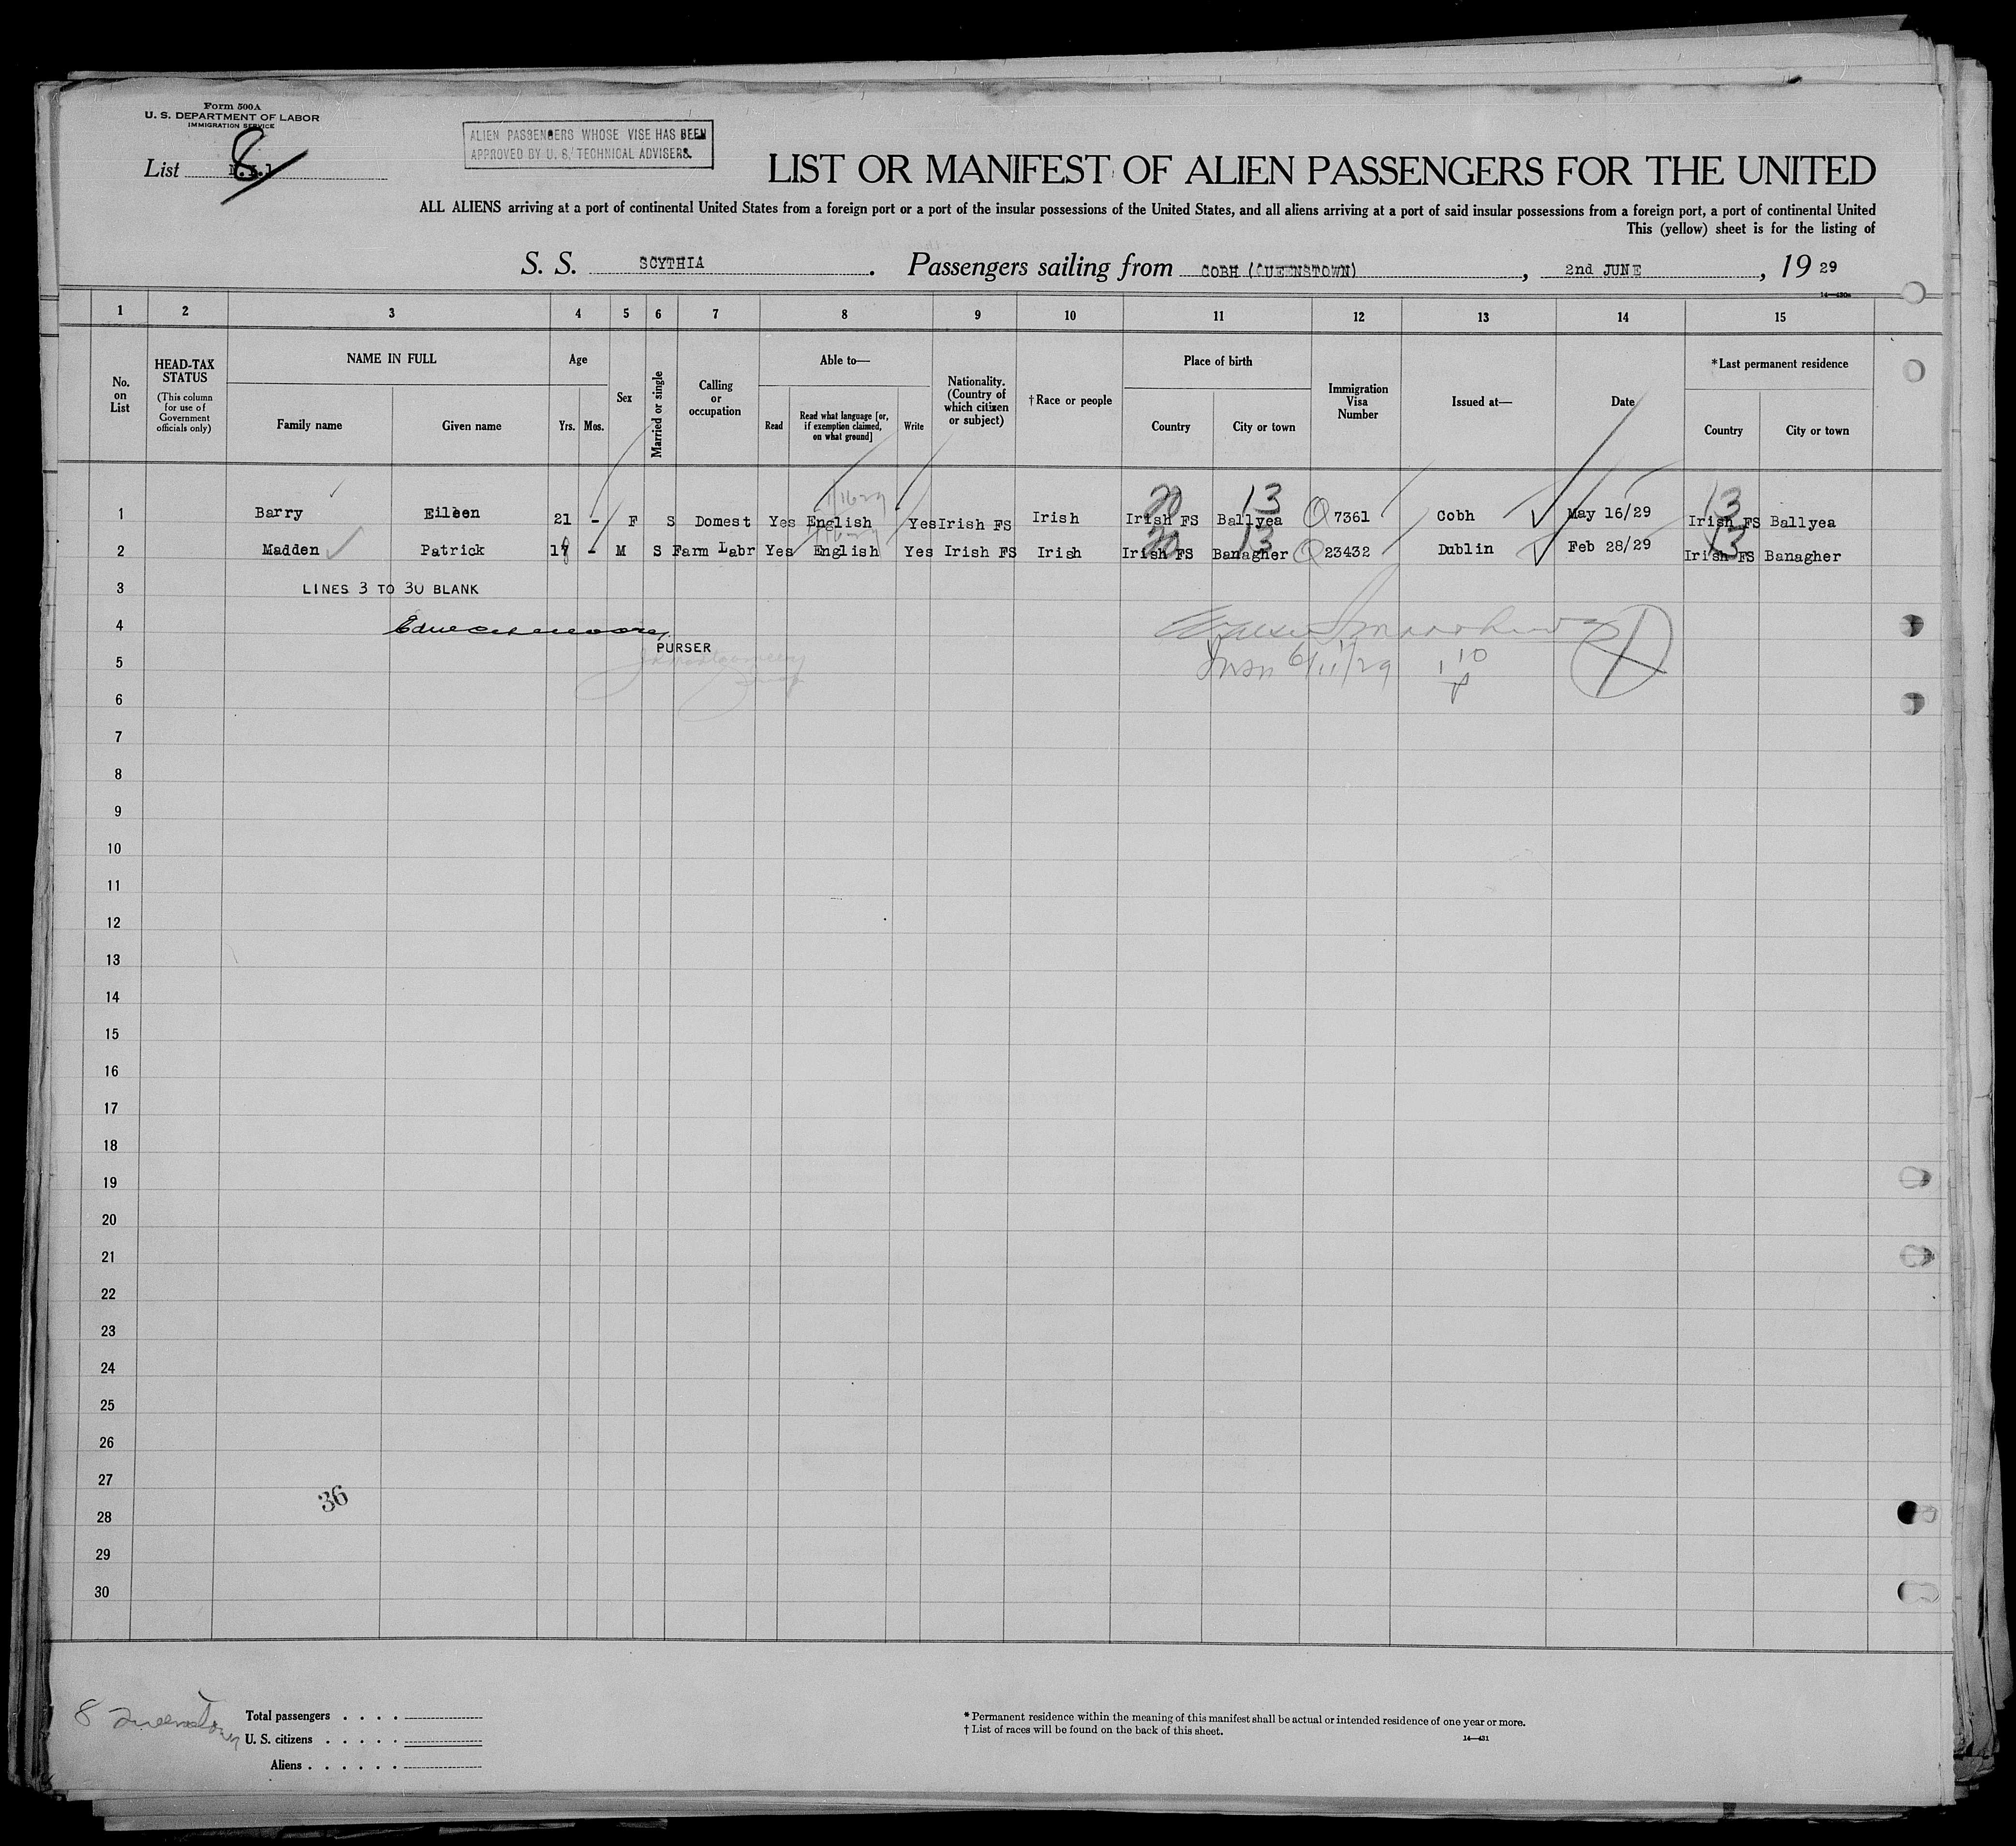 Form 500A
U. S. DEPARTMENT OF LABOR
IMMIGRATION SERVICE
List 8
ALIEN PASSENGERS WHOSE VISE HAS BEEN
APPROVED BY U. S. TECHNICAL ADVISERS.
LIST OR MANIFEST OF ALIEN PASSENGERS FOR THE UNITED
ALL ALIENS arriving at a port of continental United States from a foreign port or a port of the insular possessions of the United States, and all aliens arriving at a port of said insular possessions from a foreign port, a port of continental United
This (yellow) sheet is for the listing of
S. S. SCYTHIA. Passengers sailing from COBH (QUEENSTOWN), 2nd JUNE, 19 29
14—430a
1 2 3 4 5 6 7 8 9 10 11 12 13 14 15
No. on List
HEAD-TAX STATUS
(This column for use of Government officials only)
NAME IN FULL
Family name Given name
Age
Yrs. Mos.
Sex
Married or single
Calling or occupation
Able to—
Read
Read what language [or, if exemption claimed, on what ground]
Write
Nationality. (Country of which citizen or subject)
† Race or people
Place of birth
Country City or town
Immigration Visa Number
Issued at—
Date
*Last permanent residence
Country City or town
20 13 13
1 Barry Eileen 21 - F S Domest Yes English Yes Irish FS Irish Irish FS Ballyea Q 7361 Cobh May 16/29 Irish FS Ballyea
20 13 13
2 Madden Patrick 17 8 - M S Farm Labr Yes English Yes Irish FS Irish Irish FS Banagher Q 23432 Dublin Feb 28/29 Irish FS Banagher
3 LINES 3 TO 30 BLANK
4
PURSER
5 6/11/29 1 10
6
7
8
9
10
11
12
13
14
15
16
17
18
19
20
21
22
23
24
25
26
27
36
28
29
30
8 Queenstown
Total passengers . . . .
U. S. citizens . . . . .
Aliens . . . . . .
* Permanent residence within the meaning of this manifest shall be actual or intended residence of one year or more.
† List of races will be found on the back of this sheet.
14—431